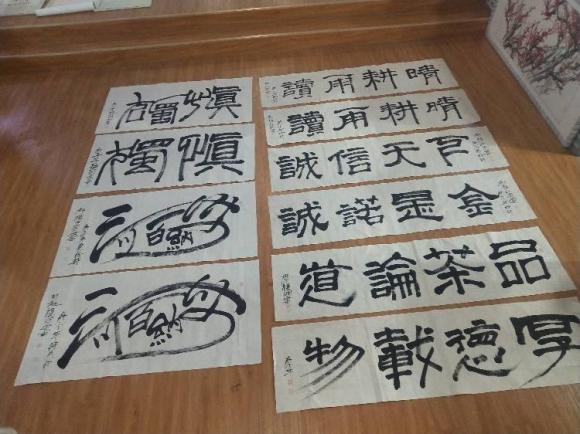 慎獨
慎獨
海納百川
海納百川
晴耕雨讀
晴耕雨讀
誠信天下
誠諾是金
品茶論道
厚德載物